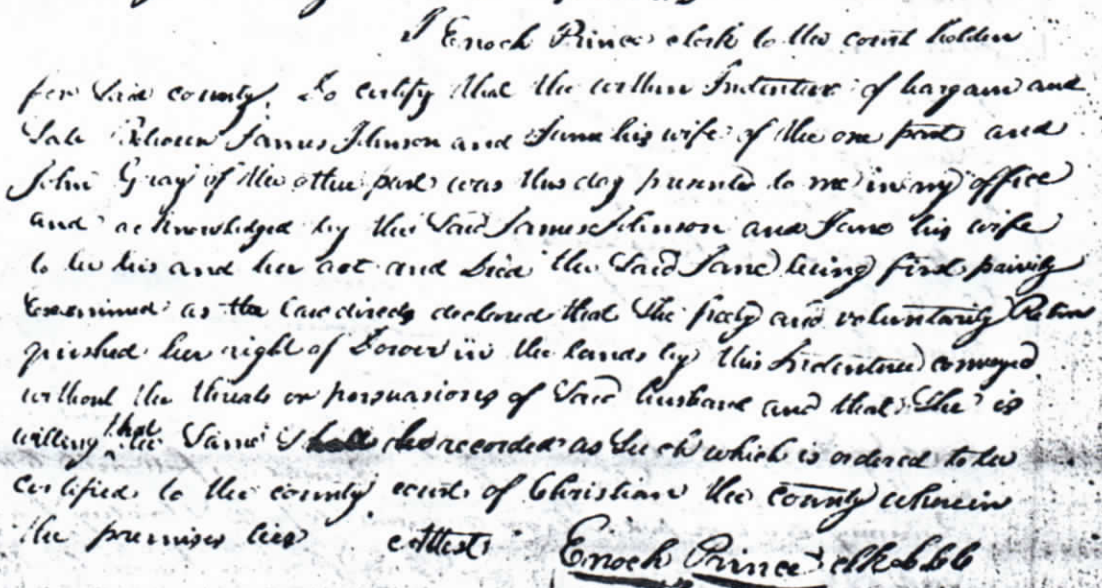 I Enoch Prince clerk to the court holden
for Said county. Do certify that the within Indenture of bargain and
Sale Between James Johnson and Jane his wife of the one part and
John Gray of the other part was this day presented to me in my office
and acknowledged by the Said James Johnson and Jane his wife
to be his and her act and Deed the Said Jane being first privily
Examined as the Law directs declared that She freely and voluntarily Relin
quished her right of Dower in the lands by this Indenture conveyed
without the threats or persuasions of Said husband and that She is
willing that the Same Shall be recorded as Such which is ordered to be
certified to the county court of Christian the county wherein
the premises lies attest Enoch Prince clk